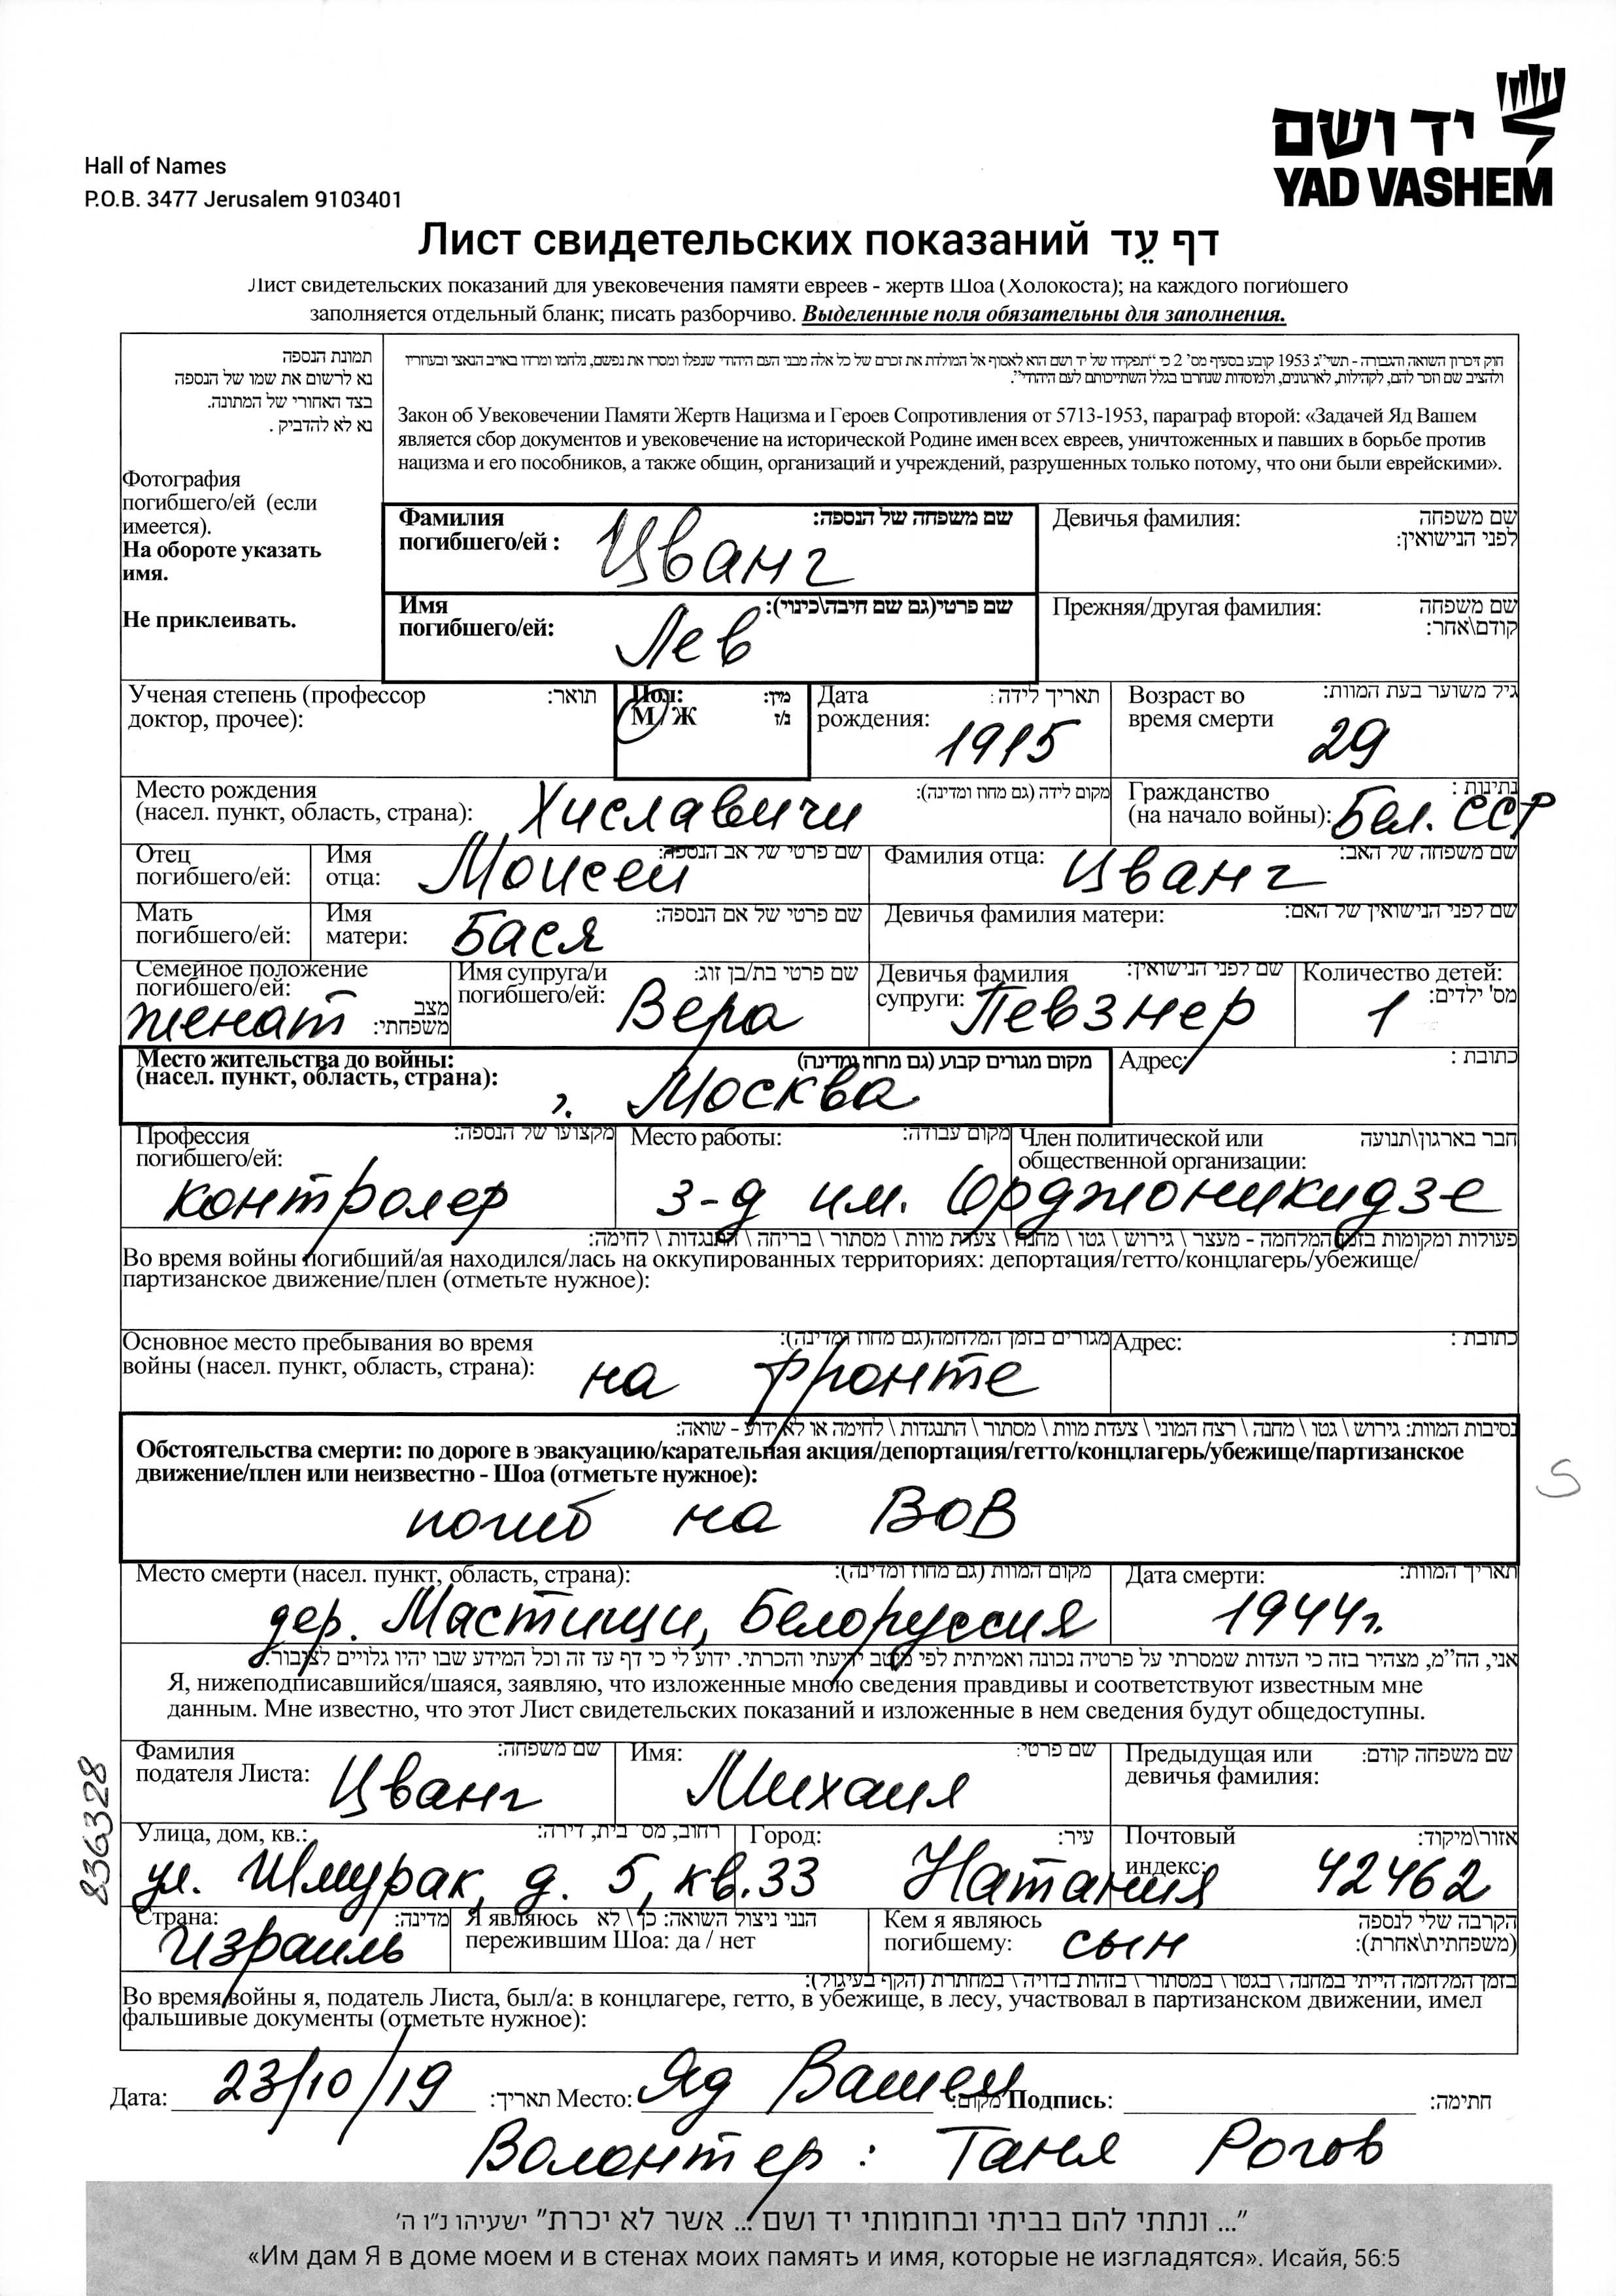 יד ושם
YAD VASHEM
Hall of Names
P.O.B. 3477 Jerusalem 9103401
Лист свидетельских показаний דף עֵד
Лист свидетельских показаний для увековечения памяти евреев - жертв Шоа (Холокоста); на каждого погибшего
заполняется отдельный бланк; писать разборчиво. Выделенные поля обязательны для заполнения.
תמונת הנספה
נא לרשום את שמו של הנספה
בצד האחורי של התמונה.
נא לא להדביק .
Фотография
погибшего/ей (если
имеется).
На обороте указать
имя.
Не приклеивать.
חוק זיכרון השואה והגבורה - תשי"ג 1953 קובע בסעיף מס' 2 כי "תפקידו של יד ושם הוא לאסוף אל המולדת את זכרם של כל אלה מבני העם היהודי שנפלו ומסרו את נפשם, נלחמו ומרדו באויב הנאצי ובעוזריו
ולהציב שם וזכר להם, לקהילות, לארגונים, ולמוסדות שנחרבו בגלל השתייכותם לעם היהודי".
Закон об Увековечении Памяти Жертв Нацизма и Героев Сопротивления от 5713-1953, параграф второй: «Задачей Яд Вашем
является сбор документов и увековечение на исторической Родине имен всех евреев, уничтоженных и павших в борьбе против
нацизма и его пособников, а также общин, организаций и учреждений, разрушенных только потому, что они были еврейскими».
Фамилия погибшего/ей : שם משפחה של הנספה:
Цванг
Девичья фамилия: שם משפחה לפני הנישואין:
Имя погибшего/ей: שם פרטי(גם שם חיבה\כינוי):
Лев
Прежняя/другая фамилия: שם משפחה קודם\אחר:
Ученая степень (профессор доктор, прочее): תואר:
Пол: מין:
М / Ж נ/ז
Дата рождения: תאריך לידה :
1915
Возраст во время смерти גיל משוער בעת המוות:
29
Место рождения (насел. пункт, область, страна): מקום לידה (גם מחוז ומדינה):
Хиславичи
Гражданство (на начало войны): נתינות :
Бел. ССР
Отец погибшего/ей:
Имя отца: שם פרטי של אב הנספה:
Моисей
Фамилия отца: שם משפחה של האב:
Цванг
Мать погибшего/ей:
Имя матери: שם פרטי של אם הנספה:
Бася
Девичья фамилия матери: שם לפני הנישואין של האם:
Семейное положение погибшего/ей: מצב משפחתי:
женат
Имя супруга/и погибшего/ей: שם פרטי בת/בן זוג:
Вера
Девичья фамилия супруги: שם לפני הנישואין:
Певзнер
Количество детей: מס' ילדים:
1
Место жительства до войны: (насел. пункт, область, страна): מקום מגורים קבוע (גם מחוז ומדינה)
г. Москва
Адрес: כתובת :
Профессия погибшего/ей: מקצועו של הנספה:
контролер
Место работы: מקום עבודה:
з-д им. Орджоникидзе
Член политической или общественной организации: חבר בארגון\תנועה
פעולות ומקומות בזמן המלחמה - מעצר \ גירוש \ גטו \ מחנה \ צעדת מוות \ מסתור \ בריחה \ התנגדות \ לחימה:
Во время войны погибший/ая находился/лась на оккупированных территориях: депортация/гетто/концлагерь/убежище/
партизанское движение/плен (отметьте нужное):
Основное место пребывания во время войны (насел. пункт, область, страна): מגורים בזמן המלחמה(גם מחוז ומדינה):
на фронте
Адрес: כתובת :
נסיבות המוות: גירוש \ גטו \ מחנה \ רצח המוני \ צעדת מוות \ מסתור \ התנגדות \ לחימה או לא ידוע - שואה:
Обстоятельства смерти: по дороге в эвакуацию/карательная акция/депортация/гетто/концлагерь/убежище/партизанское
движение/плен или неизвестно - Шоа (отметьте нужное):
погиб на ВОВ
S
Место смерти (насел. пункт, область, страна): מקום המוות (גם מחוז ומדינה):
дер. Мастищи, Белоруссия
Дата смерти: תאריך המוות:
1944г.
אני, הח"מ, מצהיר בזה כי העדות שמסרתי על פרטיה נכונה ואמיתית לפי מיטב ידיעתי והכרתי. ידוע לי כי דף עד זה וכל המידע שבו יהיו גלויים לציבור.
Я, нижеподписавшийся/шаяся, заявляю, что изложенные мною сведения правдивы и соответствуют известным мне
данным. Мне известно, что этот Лист свидетельских показаний и изложенные в нем сведения будут общедоступны.
Фамилия подателя Листа: שם משפחה:
Цванг
Имя: שם פרטי:
Михаил
Предыдущая или девичья фамилия: שם משפחה קודם:
836328
Улица, дом, кв.: רחוב, מס' בית, דירה:
ул. Шмурак, д. 5, кв.33
Город: עיר:
Натания
Почтовый индекс: אזור\מיקוד:
42462
Страна: מדינה:
Израиль
Я являюсь пережившим Шоа: да / нет הנני ניצול השואה: כן \ לא
Кем я являюсь погибшему: הקרבה שלי לנספה (משפחתית\אחרת):
сын
בזמן המלחמה הייתי במחנה \ בגטו \ במסתור \ בזהות בדויה \ במחתרת (הקף בעיגול):
Во время войны я, податель Листа, был/а: в концлагере, гетто, в убежище, в лесу, участвовал в партизанском движении, имел
фальшивые документы (отметьте нужное):
Дата: 23/10/19 תאריך: Место: Яд Вашем מקום: Подпись: חתימה:
Волонтер: Таня Рогов
"... ונתתי להם בביתי ובחומותי יד ושם ... אשר לא יכרת" ישעיהו נ"ו ה'
«Им дам Я в доме моем и в стенах моих память и имя, которые не изгладятся». Исайя, 56:5